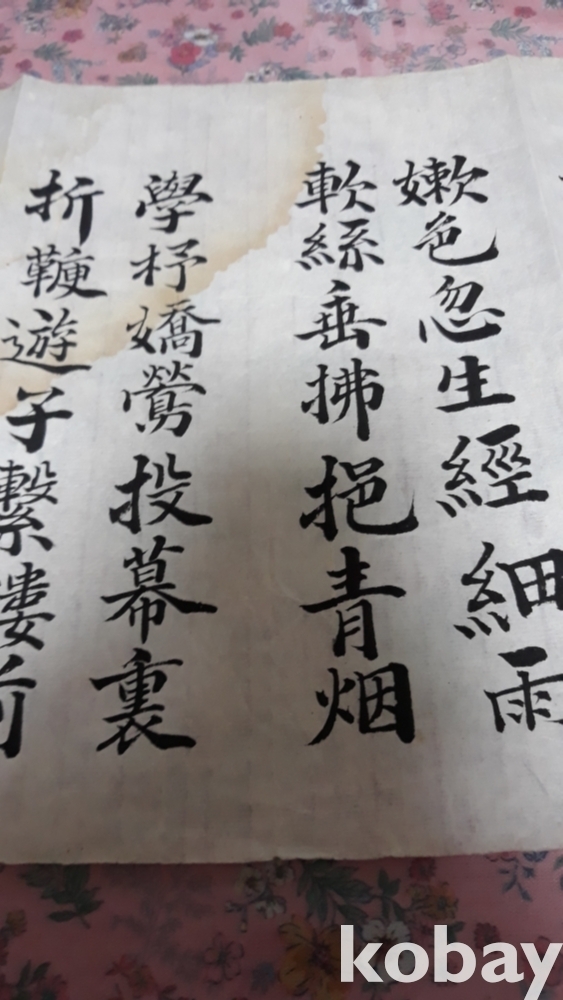 嫩色忽生經細雨
軟絲垂拂挹青烟
學杼嬌鶯投幕裏
折鞭遊子繫樓前
kobay